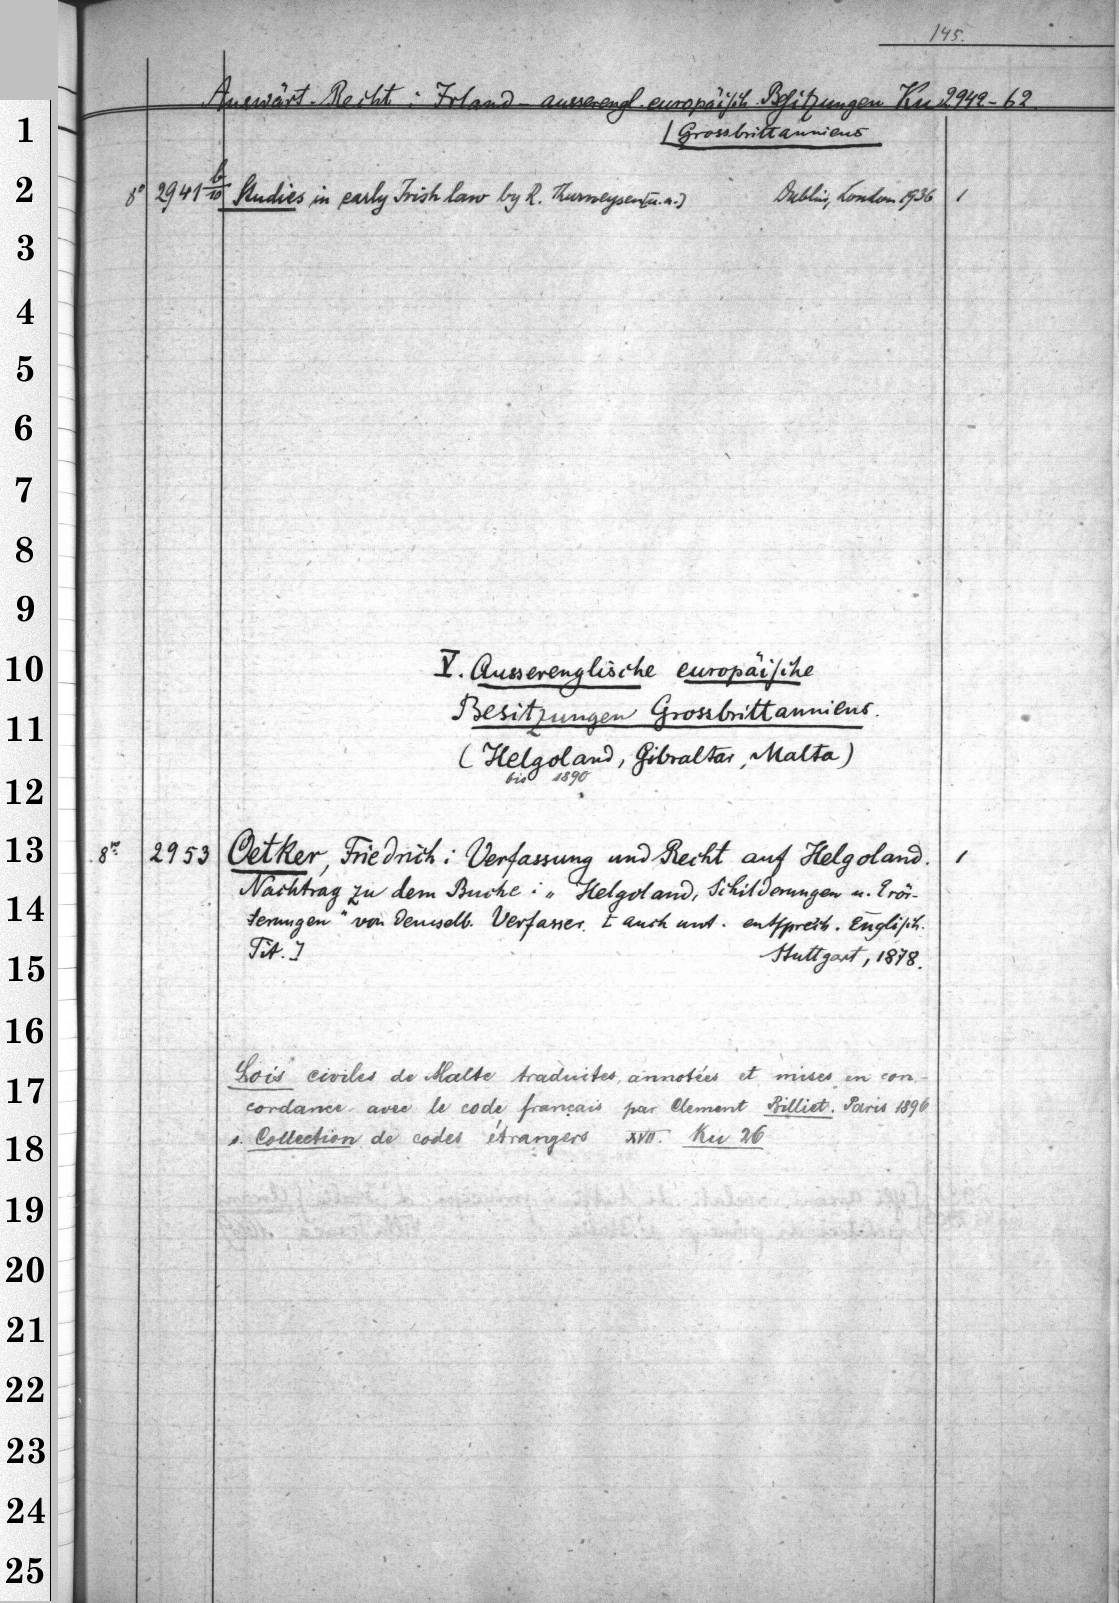 145.
Auswärt. Recht: Irland – ausserengl. europäisch. Besitzungen Ku 2949-62
[Grossbrittanniens
8° 2941 b/10 Studies in early Irish law by R. Thurneysen [u.a.] Dublin, London 1936 1
V. Ausserenglische europäische
Besitzungen Grossbrittanniens.
(Helgoland, Gibraltar, Malta)
bis 1890
8vo 2953 Oetker, Friedrich: Verfassung und Recht auf Helgoland. 1
Nachtrag zu dem Buche: „Helgoland, Schilderungen u. Erör-
terungen" von demselb. Verfasser. [auch unt. entsprech. Englisch.
Tit.] Stuttgart, 1878.
Lois civiles de Malte traduites, annotées et mises en con-
cordance avec le code français par Clement Billiet. Paris 1896
s. Collection de codes étrangers XVII. Ku 26
1
2
3
4
5
6
7
8
9
10
11
12
13
14
15
16
17
18
19
20
21
22
23
24
25